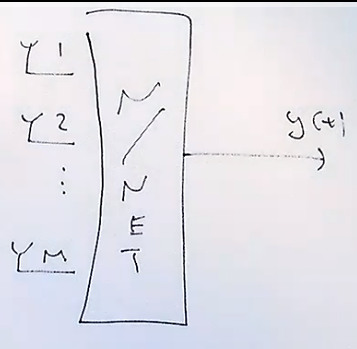 Y 1
Y 2
⋮
Y M
N/NET
y(t)